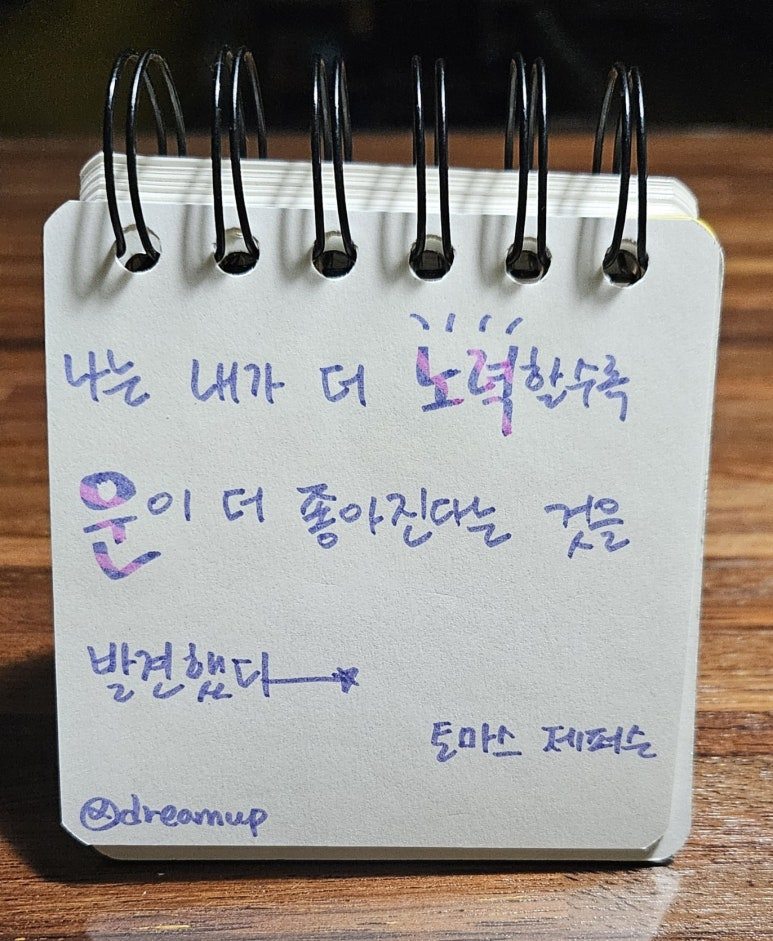 나는 내가 더 노력할수록
운이 더 좋아진다는 것을
발견했다
토마스 제퍼슨
@dreamup